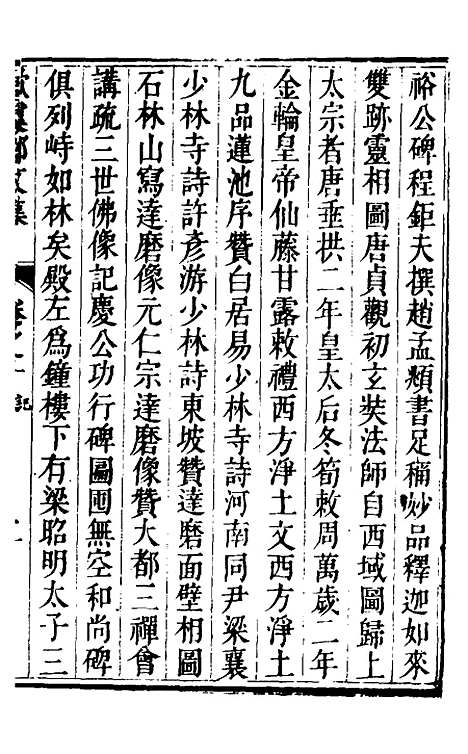 裕公碑程鉅夫撰趙孟頫書足稱妙品釋迦如來
雙跡靈相圖唐貞觀初玄奘法師自西域圖歸上
太宗者唐垂拱二年皇太后冬筍敕周萬歲二年
金輪皇帝仙藤甘露敕禮西方淨土文西方淨土
九品蓮池序贊白居易少林寺詩河南同尹梁襄
少林寺詩許彥游少林詩東坡贊達磨面壁相圖
石林山寫達磨像元仁宗達磨像贊大都三禪會
講疏三世佛像記慶公功行碑圖囬無空和尚碑
俱列峙如林矣殿左爲鐘樓下有梁昭明太子三
文集
記